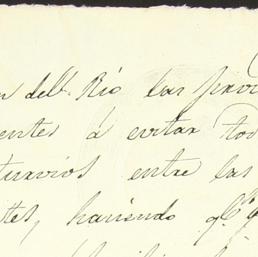 n dell Rio las provi
entes á evitar tod
turvios entre las
ttes, haciendo q.e